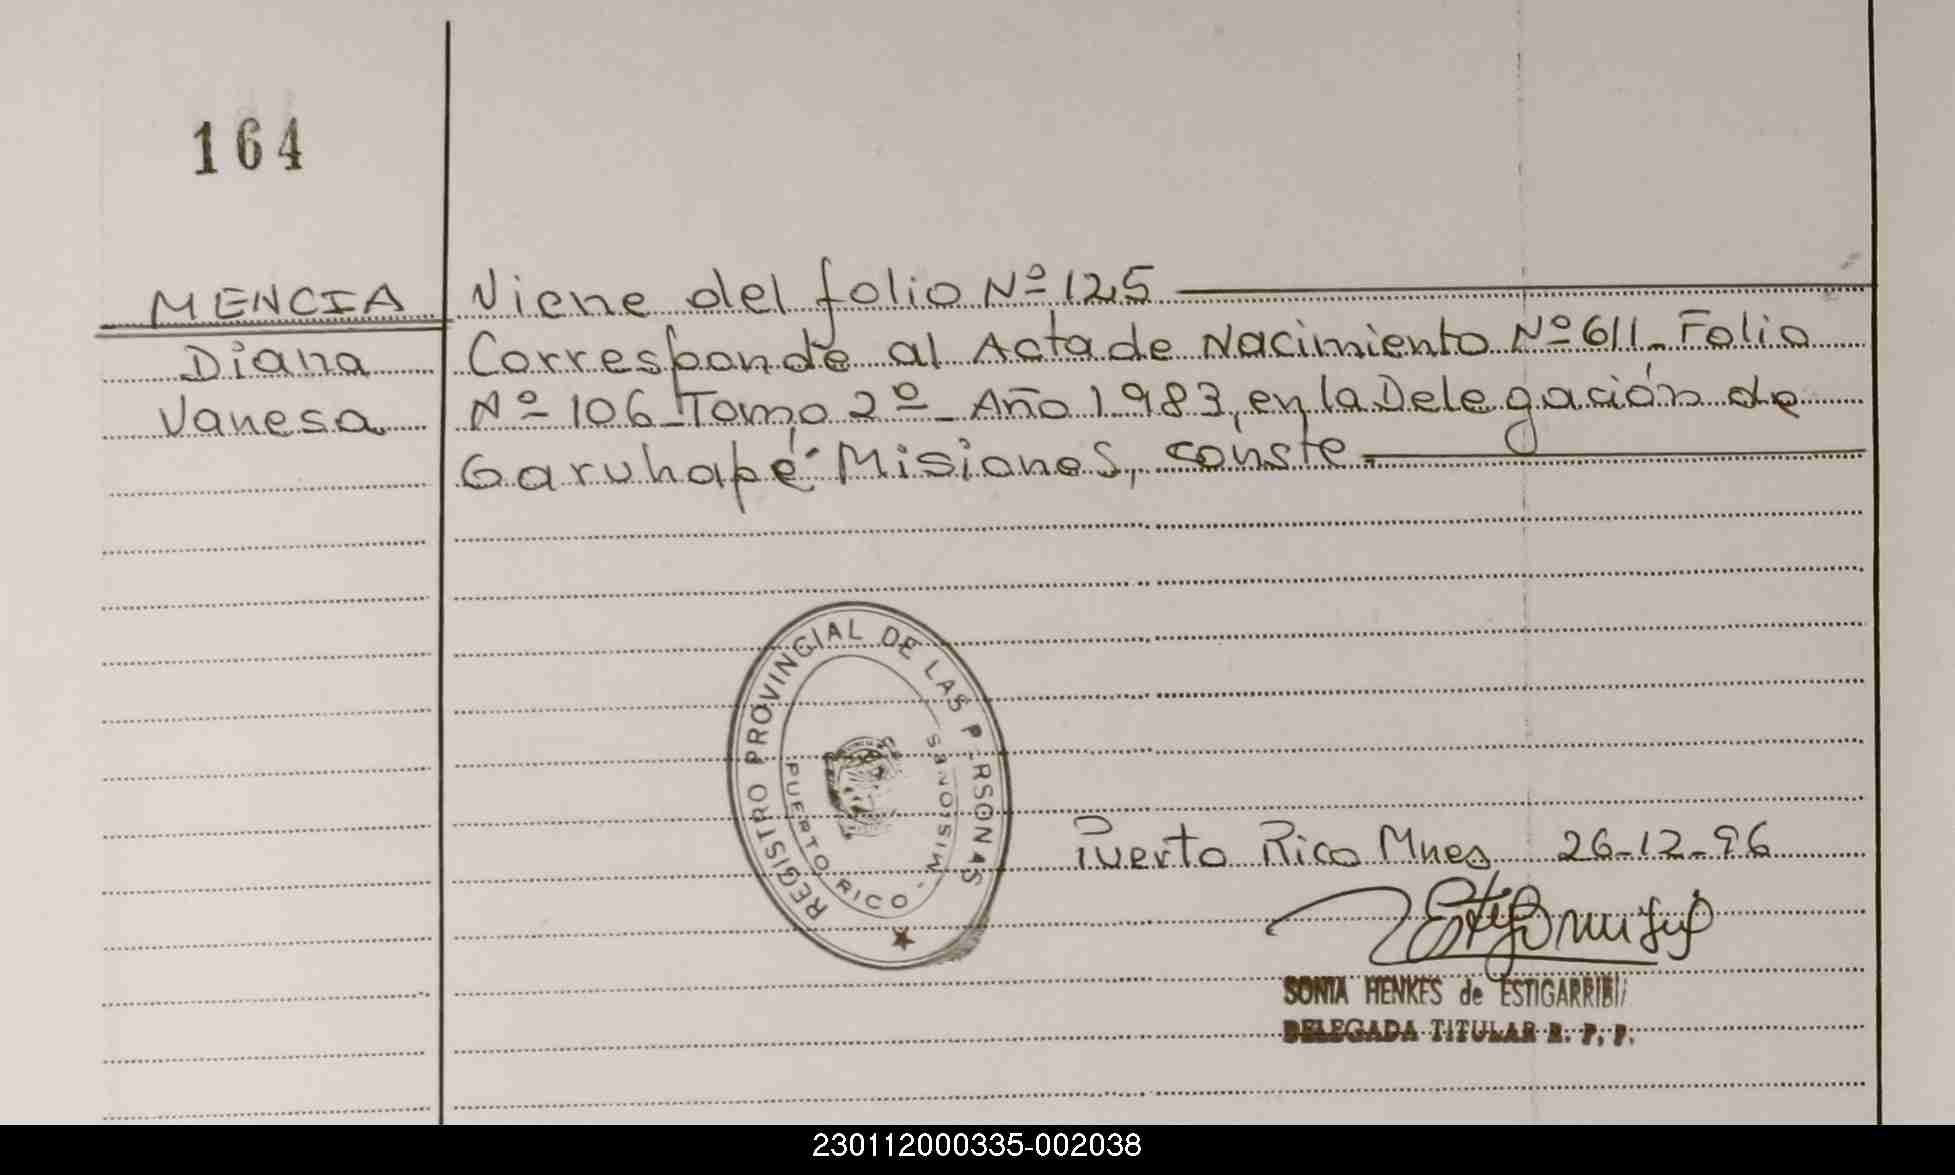 164
MENCIA
Diana
Vanesa
Viene del folio Nº 125
Corresponde al Acta de Nacimiento Nº 611_ Folio
Nº 106_Tomo 2º_ Año 1983, en la Delegación de
Garuhapé-Misiones, conste.
REGISTRO PROVINCIAL DE LAS P RSONAS
PUERTO RICO - MISIONES
Puerto Rico Mnes 26-12-96
SONIA HENKES de ESTIGARRIBI
DELEGADA TITULAR R. P. P.
230112000335-002038